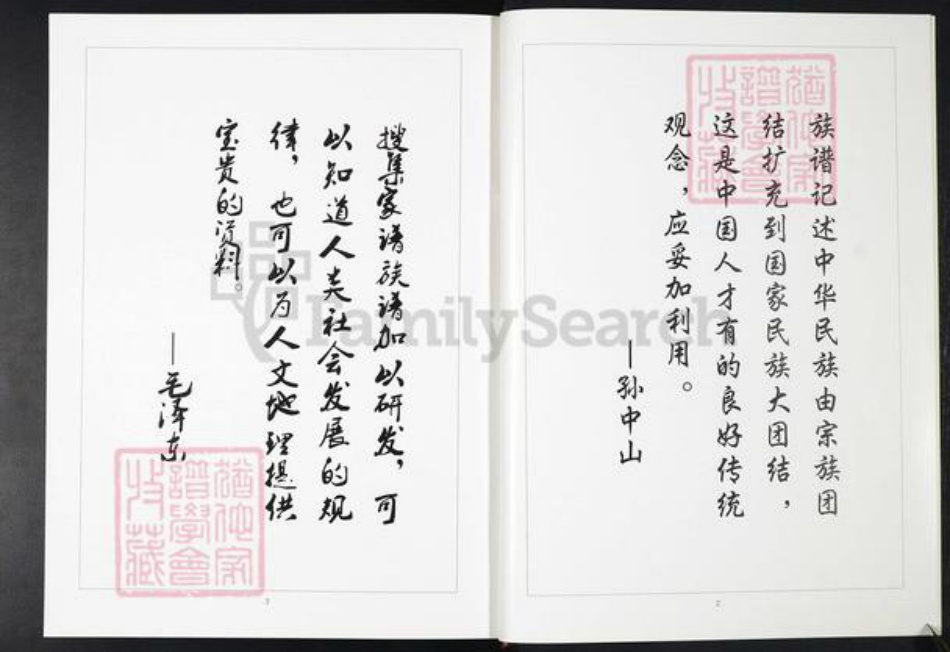 族谱记述中华民族由宗族团
结扩充到国家民族大团结，
这是中国人才有的良好传统
观念，应妥加利用。
—孙中山
2
搜集家谱族谱加以研发，可
以知道人类社会发展的规
律，也可以为人文地理提供
宝贵的资料。
—毛泽东
FamilySearch